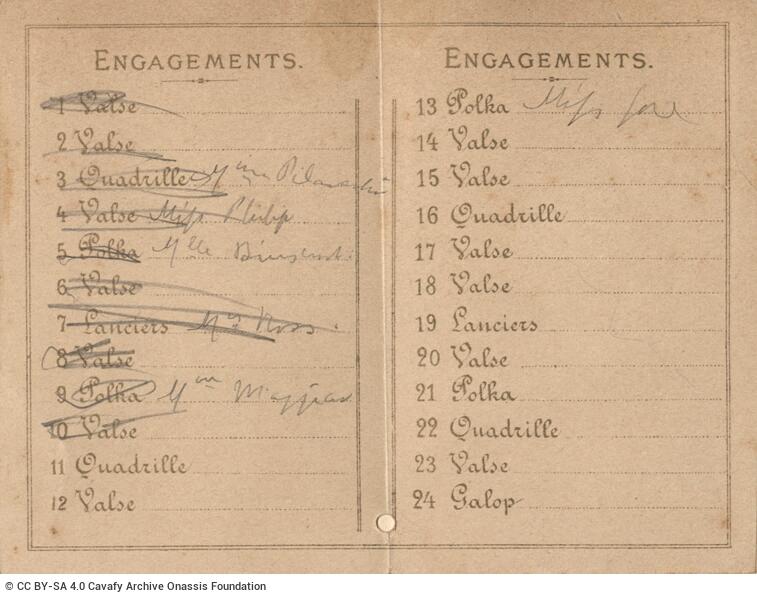 ENGAGEMENTS.
1 Valse
2 Valse
3 Quadrille Mme
4 Valse Miss Philip
5 Polka Mlle
6 Valse
7 Lanciers Mrs Ross.
8 Valse
9 Polka Mme
10 Valse
11 Quadrille
12 Valse
ENGAGEMENTS.
13 Polka Miss
14 Valse
15 Valse
16 Quadrille
17 Valse
18 Valse
19 Lanciers
20 Valse
21 Polka
22 Quadrille
23 Valse
24 Galop
© CC BY-SA 4.0 Cavafy Archive Onassis Foundation